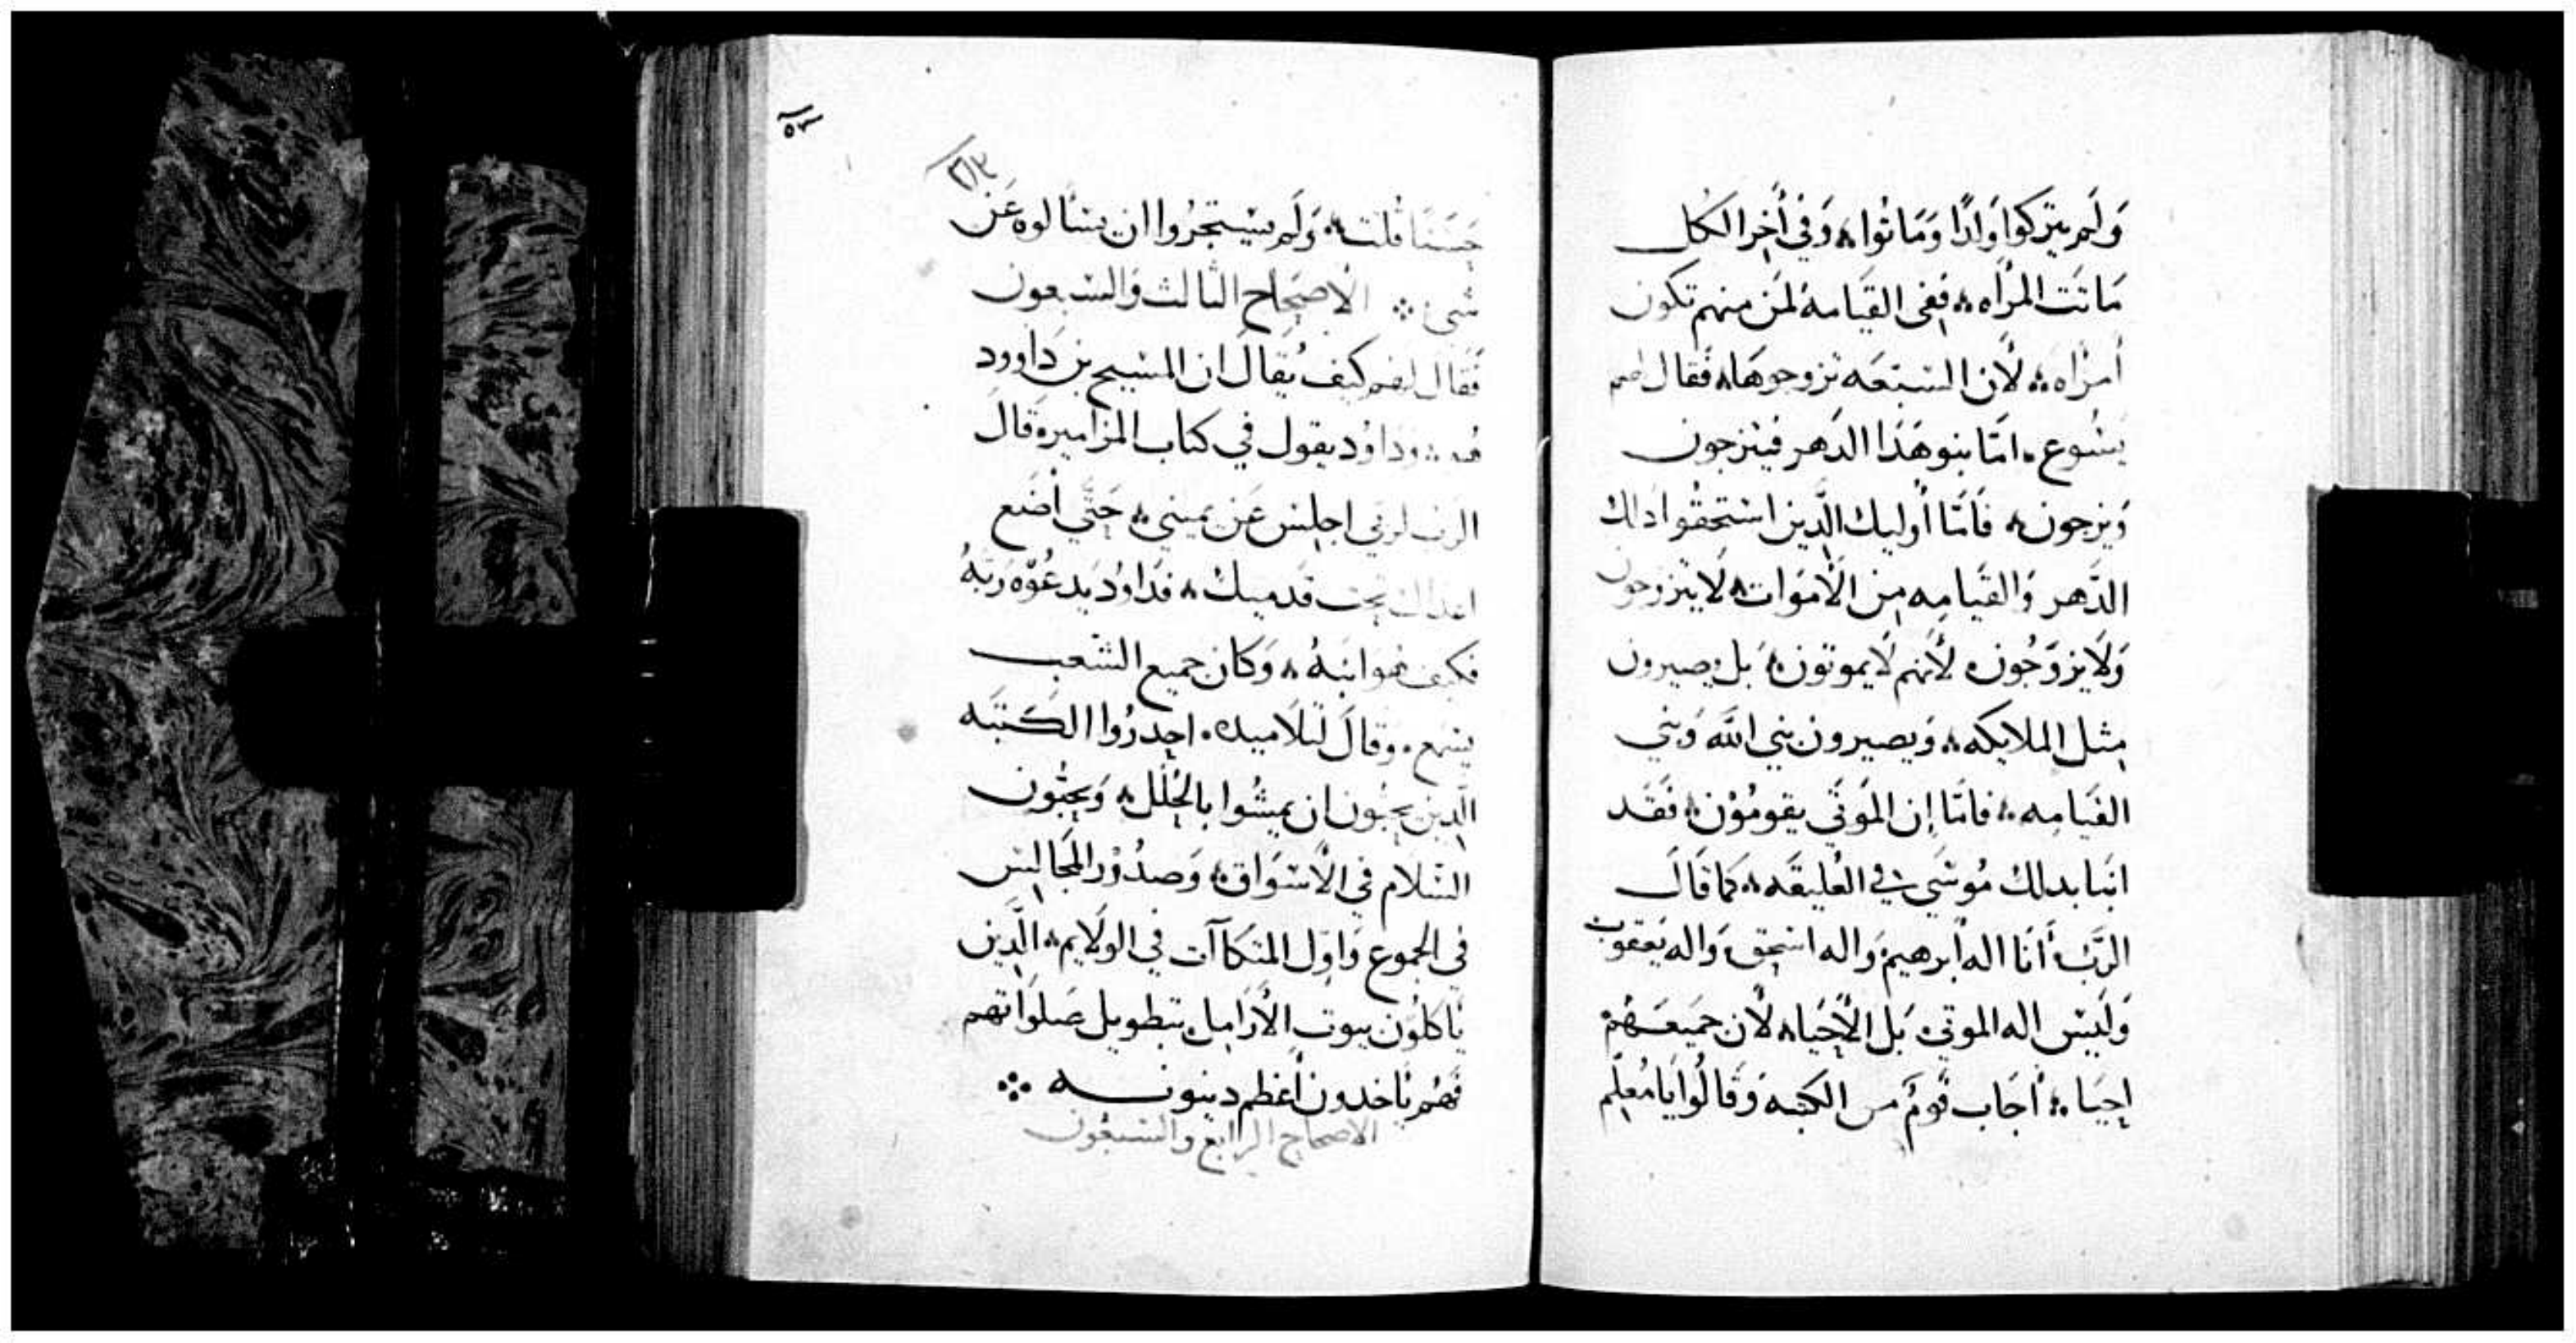 وَلَم يتركوا وَلدًا وَمَاتوا ۞ وَفي أخِر الكل
مَاتَت المرأه ۞ ففى القيَامه لمَن منهم تكون
أمرْاه ۞ لأن السَبعَه تزوجوهَا ۞ فقال لهم
يَسُوع ۞ امّا بنو هَذا الدَهر فيتزجون
وَيزجون ۞ فَامّا أُوليك الَّدين استحقوا دالك
الدَّهر وَالقيَامه مِن الأموَات ۞ لَا يتزوجون
وَلَا يزوّجُون ۞ لأنهم لَا يموتون ۞ بَل يصيرون
مِثل الملايكه ۞ وَيصيرون بني الله وَبني
القيَامِه ۞ فامّا إن المَوتَي يقومُوْن ۞ فَقَد
انبا بدلك مُوسَي في العُليقَه ۞ كمَا قَالَ
الرَبّ أَنَا اله ابرهيم وَاله اسحق وَاله يَعقوب
وَلَيسَ اله الموتي ۞ بَل الأحيَا ۞ لأن جَميعَهُم
احيَا ۞ أجَاب قَومٌ من الكتبه وَقَالُوا يَا مُعلِّم
٥٣
٢١٣
حَسَنًا قُلت ۞ وَلَم يستجرُوا ان يسَالوه عَن
شي ۞ الأصحَاح الثالث وَالسَبعون
فَقال لهم كيَف يُقالَ ان المسيح بن دَاوود
هُو ۞ ودَاوُد يقول في كتاب المزامير ۞ قَالَ
الرَب لربي اجلِس عَن يميني ۞ حَتَّي أضَع
اعداك تحت قدميك ۞ فدَاوُد يَدعُوْه رَبَّهُ
فكيف هوَ ابنَهُ ۞ وَكان جميع الشعب
يسمع ۞ وقالَ لتلَاميده ۞ احدرُوا الكَتبَه
الَّدين يحبُون ان يمشُوا بالحُلَل ۞ وَيحبُّون
السَّلام في الأسوَاق ۞ وَصدُوْر المجَالِس
في الجموع وَاوّل المتكاآت في الولَايم ۞ الَّدين
يَاكلُون بيوت الأرَامِل ۞ بتطويل صَلوَاتهم
فَهُم يَاخدون أعْظم دينونه ۞
الاصحاح الرابع والسبعُون